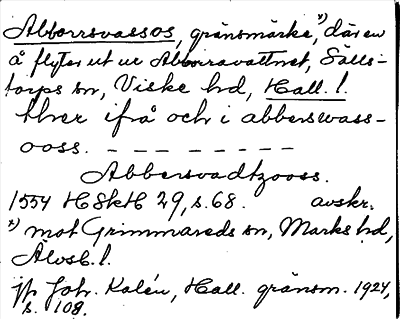 Abborrsvassos, gränsmärke,*) där en
å flyter ut ur Abborravattnet, Sälls-
torps sn, Viske hd, Hall. l.
thær ifrå och i abberswass-
ooss. – – – – – – – –
Abbersvadtzooss.
1554 HSkH 29, s. 68. avskr.
*) mot Grimmareds sn, Marks hd,
Älvsb. l.
jfr Joh. Kalén, Hall. gränsm. 1924,
s. 108.